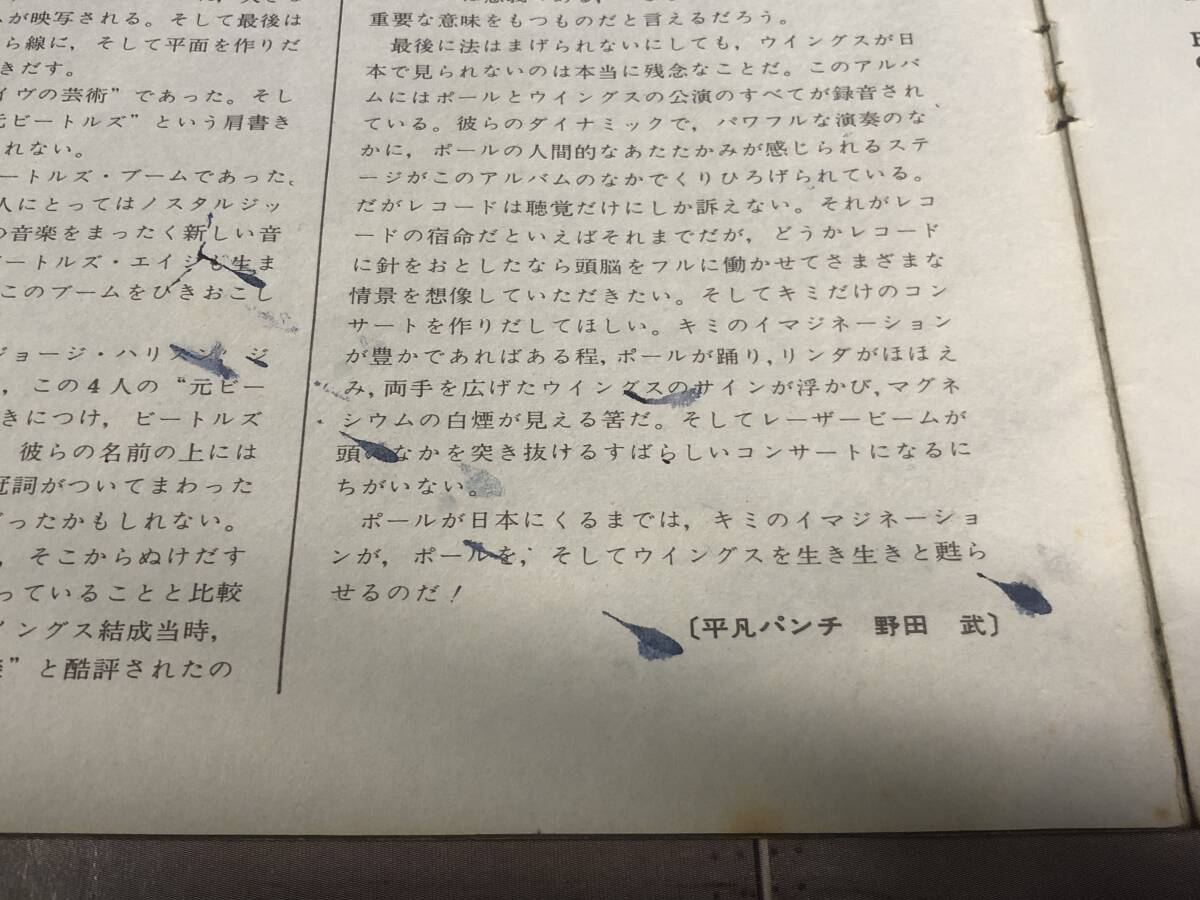 が映写される。そして最後は
ら線に，そして平面を作りだ
きだす。
イヴの芸術”であった。そし
元ビートルズ”という肩書き
れない。
ートルズ・ブームであった。
人にとってはノスタルジッ
の音楽をまったく新しい音
ビートルズ・エイジも生ま
このブームをひきおこし
ジョージ・ハリスン，ジ
，この4人の“元ビー
きにつけ，ビートルズ
彼らの名前の上には
冠詞がついてまわった
だったかもしれない。
，そこからぬけだす
っていることと比較
イングス結成当時，
”と酷評されたの
重要な意味をもつものだと言えるだろう。
最後に法はまげられないにしても，ウイングスが日
本で見られないのは本当に残念なことだ。このアルバ
ムにはポールとウイングスの公演のすべてが録音され
ている。彼らのダイナミックで，パワフルな演奏のな
かに，ポールの人間的なあたたかみが感じられるステ
ージがこのアルバムのなかでくりひろげられている。
だがレコードは聴覚だけにしか訴えない。それがレコ
ードの宿命だといえばそれまでだが，どうかレコード
に針をおとしたなら頭脳をフルに働かせてさまざまな
情景を想像していただきたい。そしてキミだけのコン
サートを作りだしてほしい。キミのイマジネーション
が豊かであればある程，ポールが踊り，リンダがほほえ
み，両手を広げたウイングスのサインが浮かび，マグネ
シウムの白煙が見える筈だ。そしてレーザービームが
頭のなかを突き抜けるすばらしいコンサートになるに
ちがいない。
ポールが日本にくるまでは，キミのイマジネーショ
ンが，ポールを，そしてウイングスを生き生きと甦ら
せるのだ！
〔平凡パンチ　野田　武〕